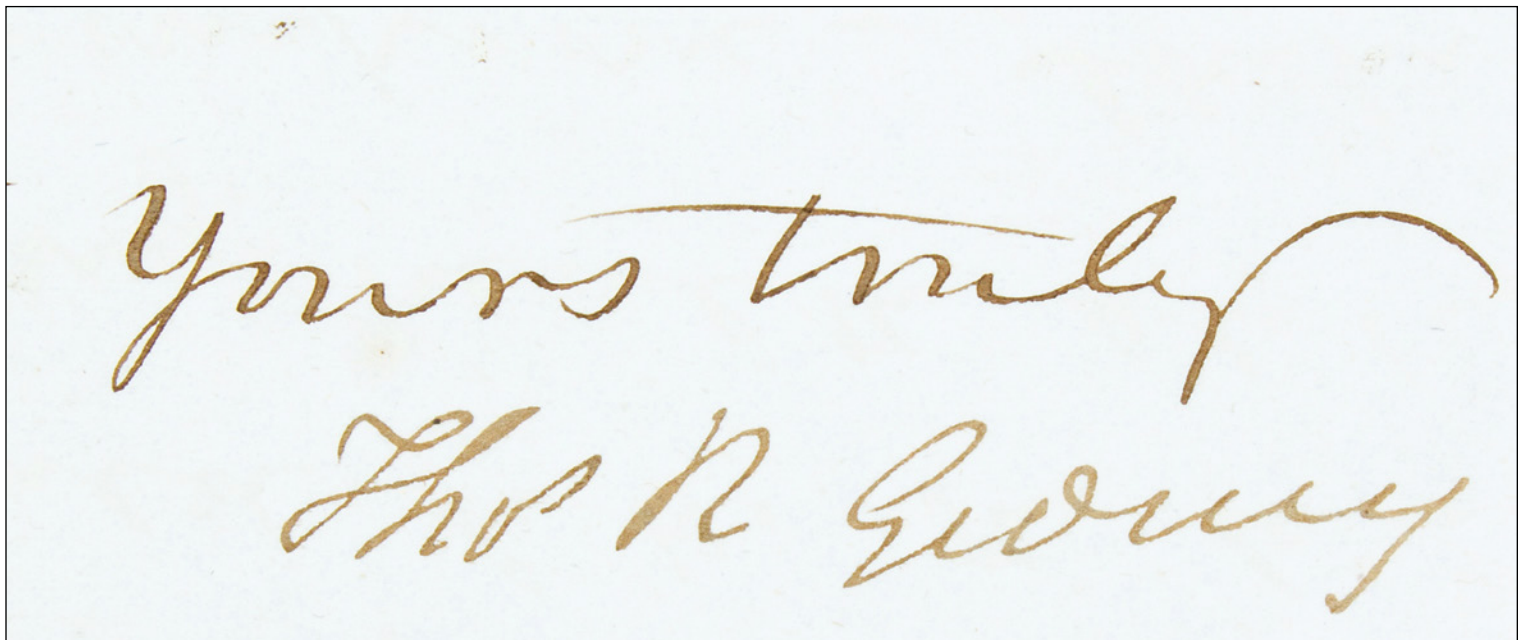 Yours truly
Thos R Gedney